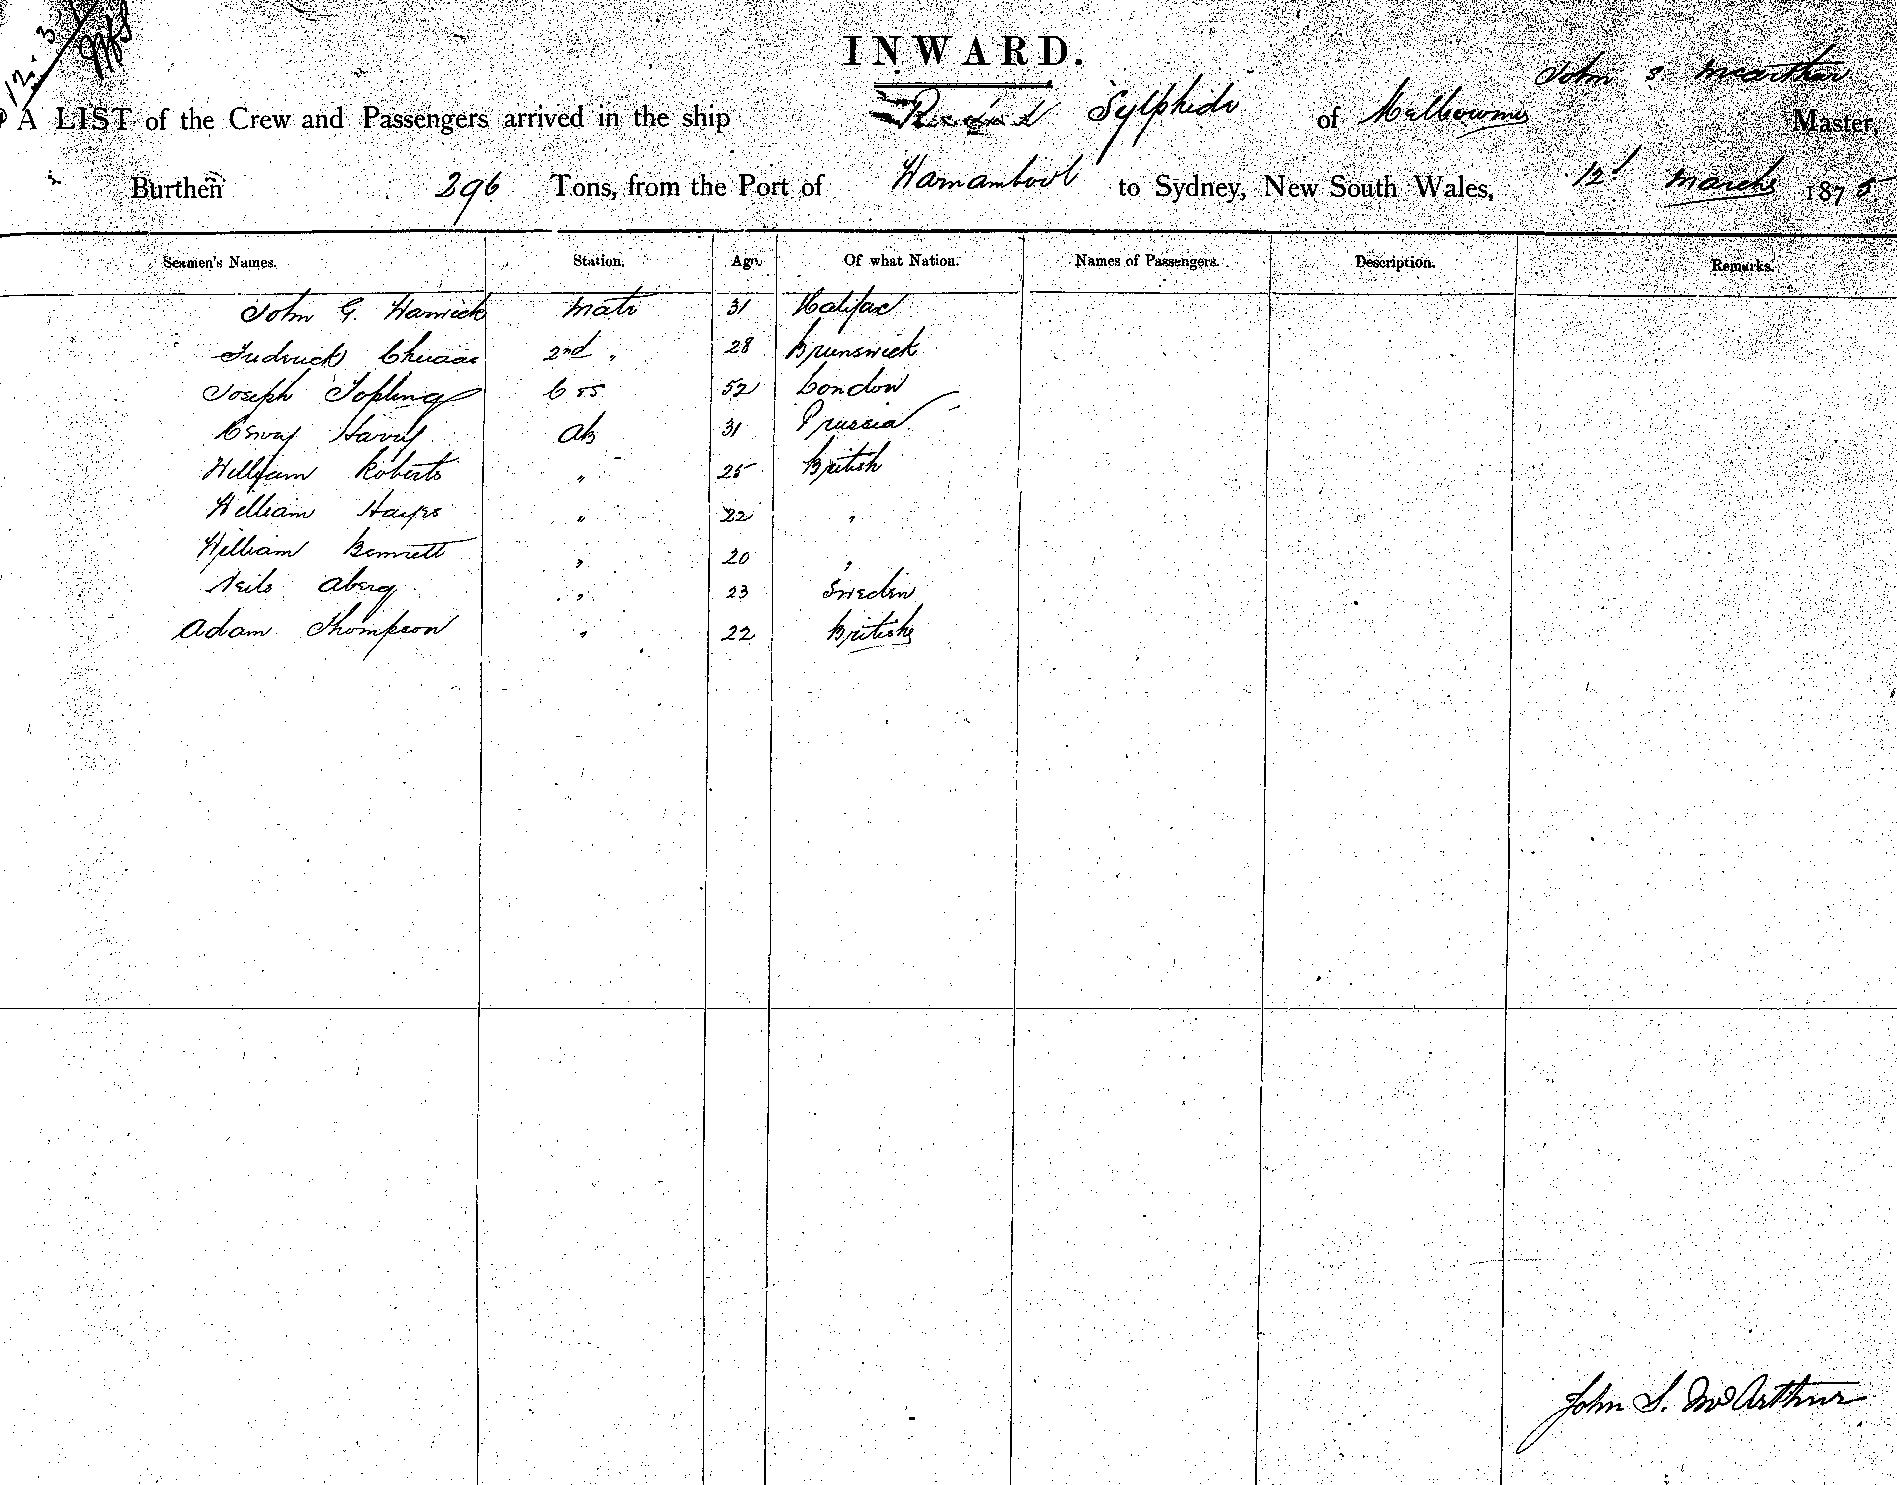 12.3
INWARD.
John S. McArthur
A LIST of the Crew and Passengers arrived in the ship Sylphide of Melbourne Master,
Burthen 296 Tons, from the Port of Warnambool to Sydney, New South Wales, 12 March 1875
Seamen's Names. Station. Age. Of what Nation. Names of Passengers. Description. Remarks.
John G. Warwick Mate 31 Halifax
Fredrick 2nd " 28 Brunswick
Joseph Topling 52 London
Harry AB 31 Prussia
William Roberts " 25 British
William Hayes " 22 "
William Bennett " 20 "
Neils Aberg " 23 Sweden
Adam Thompson " 22 British
John S. McArthur